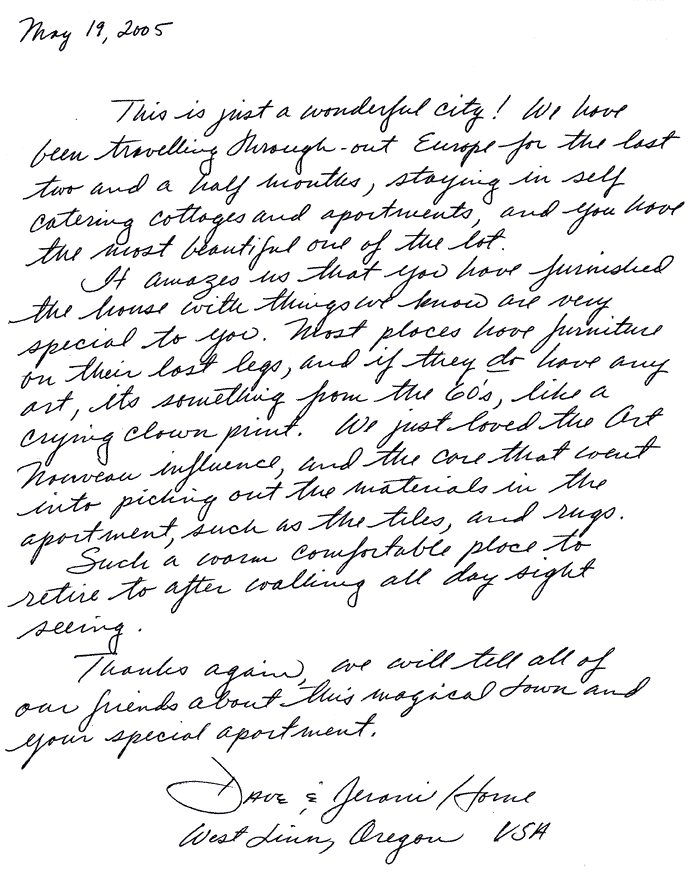 May 19, 2005
This is just a wonderful city! We have
been travelling through-out Europe for the last
two and a half months, staying in self
catering cottages and apartments, and you have
the most beautiful one of the lot.
It amazes us that you have furnished
the house with things we know are very
special to you. Most places have furniture
on their last legs, and if they do have any
art, its something from the 60's, like a
crying clown print. We just loved the Art
Nouveau influence, and the care that went
into picking out the materials in the
apartment, such as the tiles, and rugs.
Such a warm comfortable place to
retire to after walking all day sight
seeing.
Thanks again, we will tell all of
our friends about this magical town and
your special apartment.
Dave & Jerani Horne
West Linn, Oregon USA